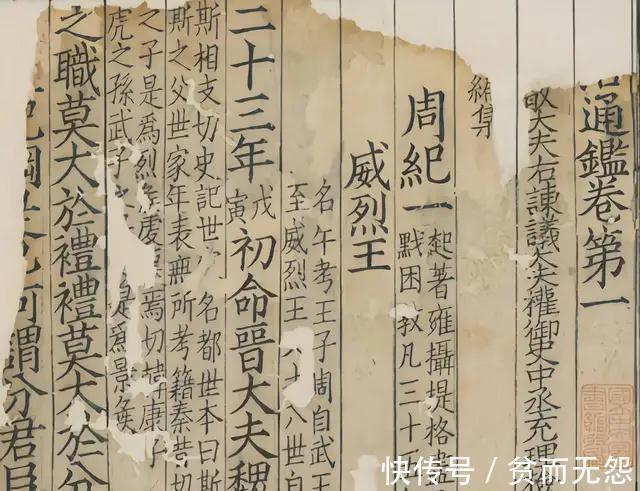 通鑑卷第一
大夫右諫議大夫權御史中丞充理
周紀一
起著雍攝提格
黓困敦凡三十
威烈王
名午考王子周自武王
至威烈王 八世自
二十三年
戊寅
初命晉大夫魏
斯相支切史記世 名都世本曰斯
斯之父世家年表無所考籍秦昔切
之子是爲烈矦虔 焉切韓康子
虎之孫武子 是爲景矦
之職莫大於禮禮莫大於分
紀綱是也何謂分君臣
快传号／贫而无怨